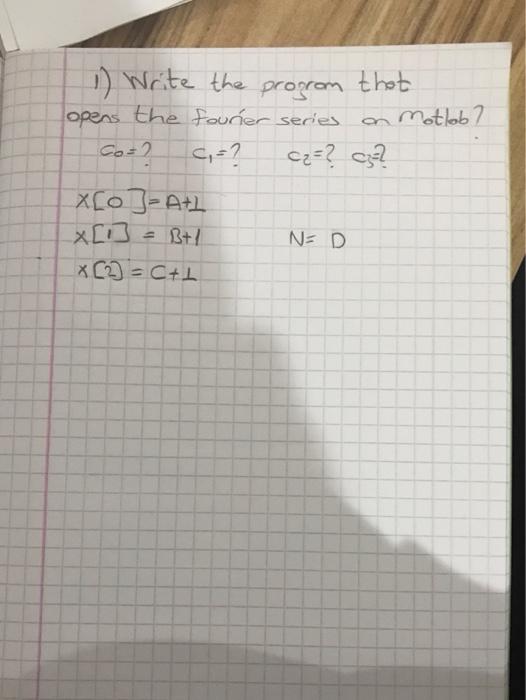 1) Write the program that
opens the fourier series on Matlab?
C0=? C1=? C2=? C3=?
x[0]=A+1
x[1] = B+1 N= D
x[2] = C+1